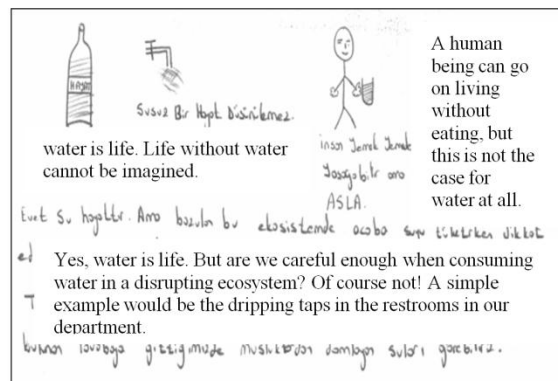 HAYAT
Susuz Bir Hayat Düşünülemez.
water is life. Life without water
cannot be imagined.
insan Yemek Yemek
Yaşayabilir ama
ASLA.
A human
being can go
on living
without
eating, but
this is not the
case for
water at all.
Evet Su hayattır. Ama bozulan bu ekosistemde acaba suyu tüketirken dikkat
ed
Yes, water is life. But are we careful enough when consuming
water in a disrupting ecosystem? Of course not! A simple
example would be the dripping taps in the restrooms in our
department.
T
bulunan lavaboya gittiğimizde musluklardan damlayan suları görebiliriz.